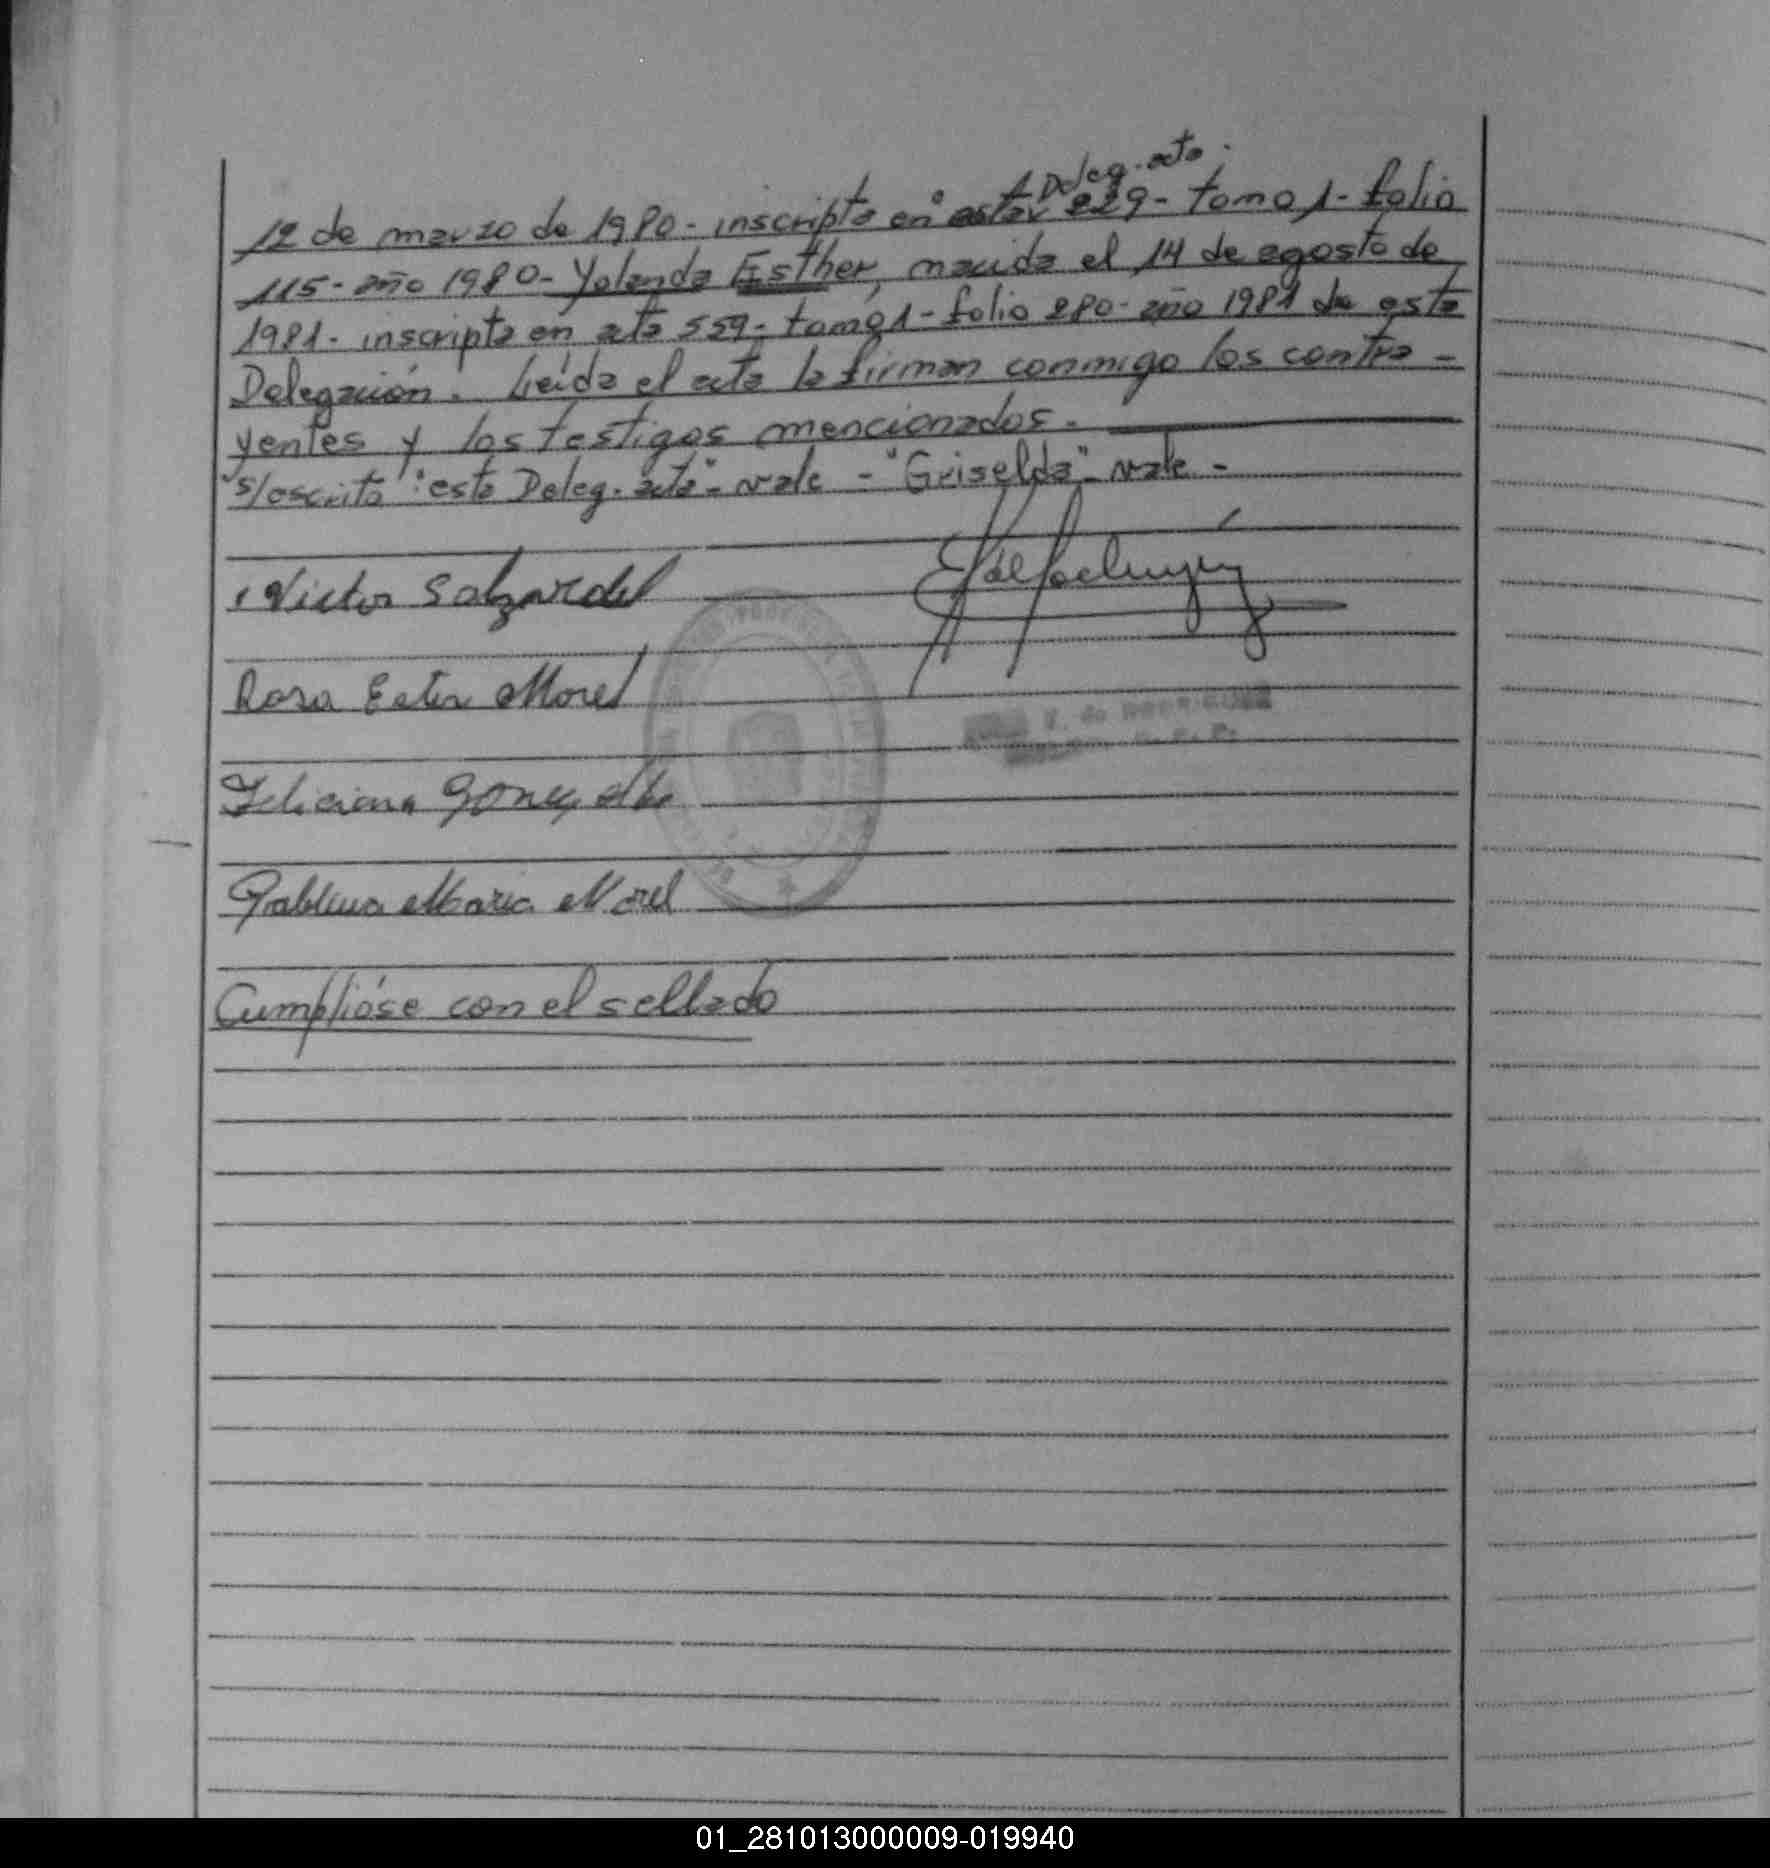 Deleg. acta.
12 de marzo de 1980 - inscripta en esta 229 - tomo 1 - folio
115 - año 1980 - Yolanda Esther, nacida el 14 de agosto de
1981 - inscripta en acta 559 - tomo 1 - folio 280 - año 1981 de esta
Delegación. Leída el acta la firman conmigo los contra-
yentes y los testigos mencionados.
S/escrito "esta Deleg. acta" - vale - "Griselda" - vale -
Victor
Rosa Ester Morel
Feliciana
Maria Morel
Cumplióse con el sellado
01_281013000009-019940